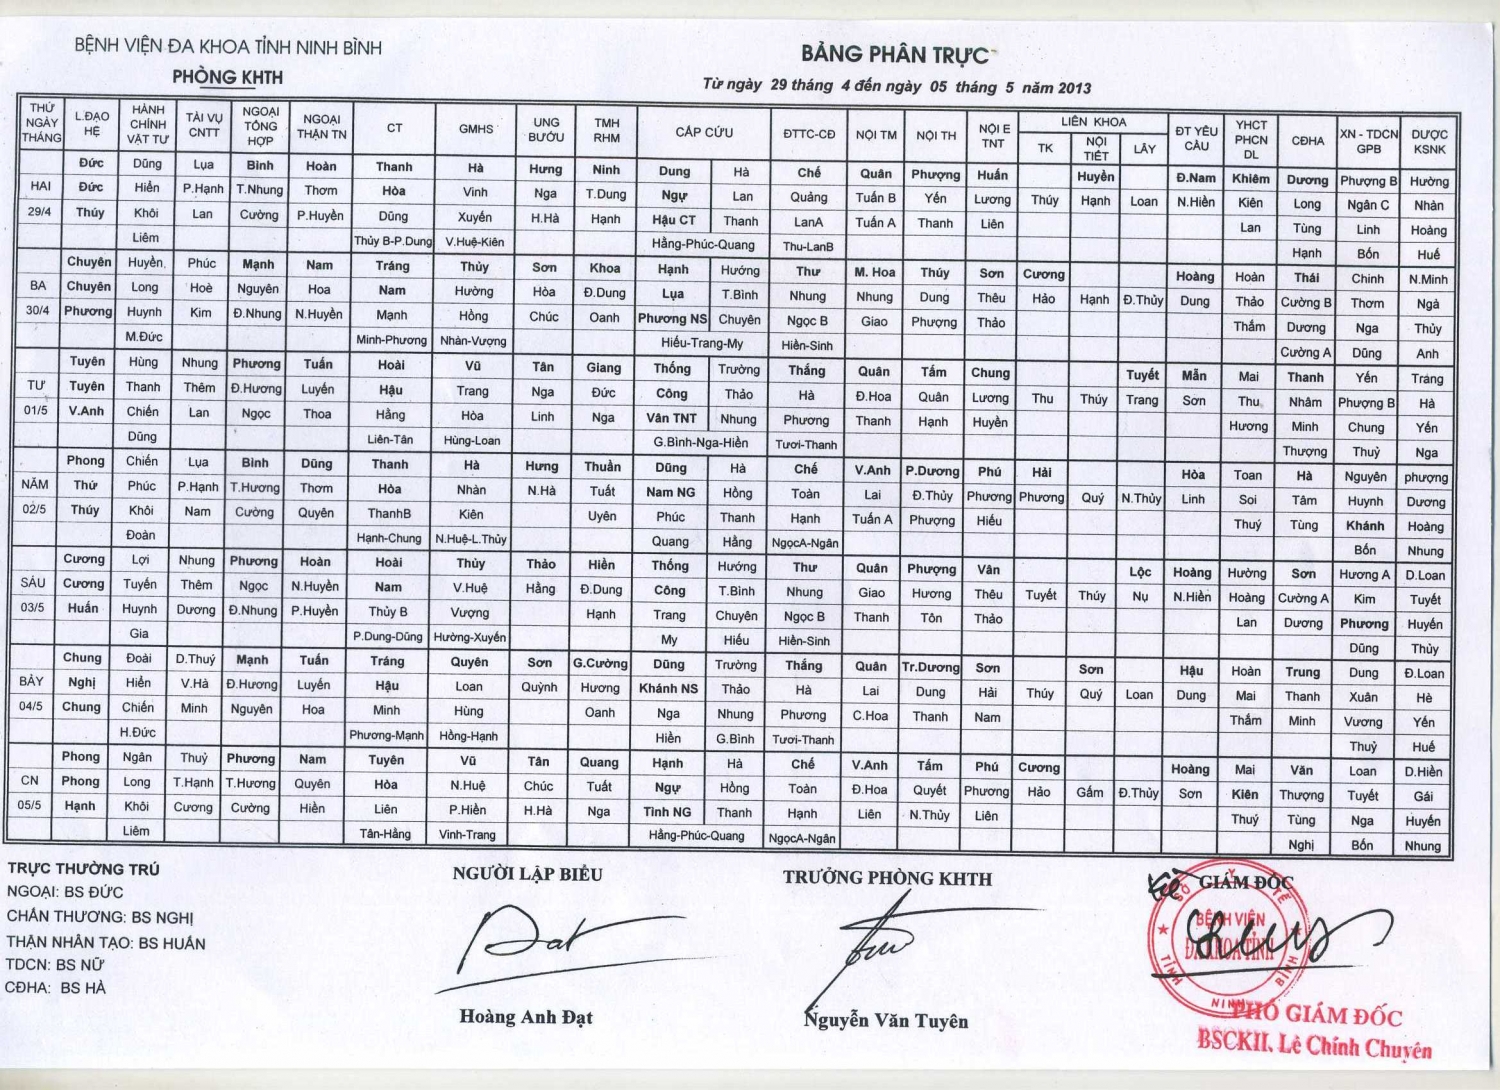 BỆNH VIỆN ĐA KHOA TỈNH NINH BÌNH
PHÒNG KHTH
BẢNG PHÂN TRỰC
Từ ngày 29 tháng 4 đến ngày 05 tháng 5 năm 2013
THỨ NGÀY THÁNG | L.ĐẠO HỆ | HÀNH CHÍNH VẬT TƯ | TÀI VỤ CNTT | NGOẠI TỔNG HỢP | NGOẠI THẬN TN | CT | GMHS | UNG BƯỚU | TMH RHM | CẤP CỨU | ĐTTC-CĐ | NỘI TM | NỘI TH | NỘI E TNT | LIÊN KHOA | TK | NỘI TIẾT | LÂY | ĐT YÊU CẦU | YHCT PHCN DL | CĐHA | XN - TDCN GPB | DƯỢC KSNK
Đức | Dũng | Lụa | Bình | Hoàn | Thanh | Hà | Hưng | Ninh | Dung | Hà | Chế | Quân | Phượng | Huấn | Huyền | Đ.Nam | Khiêm | Dương | Phượng B | Hường
HAI | Đức | Hiển | P.Hạnh | T.Nhung | Thơm | Hòa | Vinh | Nga | T.Dung | Ngự | Lan | Quảng | Tuấn B | Yến | Lương | Thúy | Hạnh | Loan | N.Hiền | Kiên | Long | Ngân C | Nhàn
29/4 | Thúy | Khôi | Lan | Cường | P.Huyền | Dũng | Xuyến | H.Hà | Hạnh | Hậu CT | Thanh | LanA | Tuấn A | Thanh | Liên | Lan | Tùng | Linh | Hoàng
Liêm | Thủy B-P.Dung | V.Huệ-Kiên | Hằng-Phúc-Quang | Thu-LanB | Hạnh | Bốn | Huế
Chuyên | Huyền | Phúc | Mạnh | Nam | Tráng | Thủy | Sơn | Khoa | Hạnh | Hướng | Thư | M. Hoa | Thúy | Sơn | Cương | Hoàng | Hoàn | Thái | Chinh | N.Minh
BA | Chuyên | Long | Hoè | Nguyên | Hoa | Nam | Hường | Hòa | Đ.Dung | Lụa | T.Bình | Nhung | Nhung | Dung | Thêu | Hảo | Hạnh | Đ.Thủy | Dung | Thảo | Cường B | Thơm | Ngà
30/4 | Phương | Huynh | Kim | Đ.Nhung | N.Huyền | Mạnh | Hồng | Chúc | Oanh | Phương NS | Chuyên | Ngọc B | Giao | Phượng | Thảo | Thắm | Dương | Nga | Thủy
M.Đức | Minh-Phương | Nhàn-Vượng | Hiếu-Trang-My | Hiền-Sinh | Cường A | Dũng | Anh
Tuyên | Hùng | Nhung | Phương | Tuấn | Hoài | Vũ | Tân | Giang | Thống | Trường | Thắng | Quân | Tấm | Chung | Tuyết | Mẫn | Mai | Thanh | Yến | Tráng
TƯ | Tuyên | Thanh | Thêm | Đ.Hương | Luyến | Hậu | Trang | Nga | Đức | Công | Thảo | Hà | Đ.Hoa | Quân | Lương | Thu | Thúy | Trang | Sơn | Thu | Nhâm | Phượng B | Hà
01/5 | V.Anh | Chiến | Lan | Ngọc | Thoa | Hằng | Hòa | Linh | Nga | Vân TNT | Nhung | Phương | Thanh | Hạnh | Huyền | Hương | Minh | Chung | Yến
Dũng | Liên-Tân | Hùng-Loan | G.Bình-Nga-Hiền | Tươi-Thanh | Thượng | Thuỷ | Nga
Phong | Chiến | Lụa | Bình | Dũng | Thanh | Hà | Hưng | Thuần | Dũng | Hà | Chế | V.Anh | P.Dương | Phú | Hải | Hòa | Toan | Hà | Nguyên | phượng
NĂM | Thứ | Phúc | P.Hạnh | T.Hương | Thơm | Hòa | Nhàn | N.Hà | Tuất | Nam NG | Hồng | Toàn | Lai | Đ.Thủy | Phương | Phương | Quý | N.Thủy | Linh | Soi | Tâm | Huynh | Dương
02/5 | Thúy | Khôi | Nam | Cường | Quyên | ThanhB | Kiên | Uyên | Phúc | Thanh | Hạnh | Tuấn A | Phượng | Hiếu | Thuý | Tùng | Khánh | Hoàng
Đoàn | Hạnh-Chung | N.Huệ-L.Thủy | Quang | Hằng | NgọcA-Ngân | Bốn | Nhung
Cương | Lợi | Nhung | Phương | Hoàn | Hoài | Thủy | Thảo | Hiền | Thống | Hướng | Thư | Quân | Phượng | Vân | Lộc | Hoàng | Hường | Sơn | Hương A | D.Loan
SÁU | Cương | Tuyến | Thêm | Ngọc | N.Huyền | Nam | V.Huệ | Hằng | Đ.Dung | Công | T.Bình | Nhung | Giao | Hương | Thêu | Tuyết | Thúy | Nụ | N.Hiền | Hoàng | Cường A | Kim | Tuyết
03/5 | Huấn | Huynh | Dương | Đ.Nhung | P.Huyền | Thủy B | Vượng | Hạnh | Trang | Chuyên | Ngọc B | Thanh | Tôn | Thảo | Lan | Dương | Phương | Huyền
Gia | P.Dung-Dũng | Hường-Xuyến | My | Hiếu | Hiền-Sinh | Dũng | Thủy
Chung | Đoài | D.Thuý | Mạnh | Tuấn | Tráng | Quyên | Sơn | G.Cường | Dũng | Trường | Thắng | Quân | Tr.Dương | Sơn | Sơn | Hậu | Hoàn | Trung | Dung | Đ.Loan
BẢY | Nghị | Hiển | V.Hà | Đ.Hương | Luyến | Hậu | Loan | Quỳnh | Hương | Khánh NS | Thảo | Hà | Lai | Dung | Hải | Thúy | Quý | Loan | Dung | Mai | Thanh | Xuân | Hè
04/5 | Chung | Chiến | Minh | Nguyên | Hoa | Minh | Hùng | Oanh | Nga | Nhung | Phương | C.Hoa | Thanh | Nam | Thắm | Minh | Vương | Yến
H.Đức | Phương-Mạnh | Hồng-Hạnh | Hiền | G.Bình | Tươi-Thanh | Thuỷ | Huế
Phong | Ngân | Thuỷ | Phương | Nam | Tuyên | Vũ | Tân | Quang | Hạnh | Hà | Chế | V.Anh | Tấm | Phú | Cương | Hoàng | Mai | Văn | Loan | D.Hiền
CN | Phong | Long | T.Hạnh | T.Hương | Quyên | Hòa | N.Huệ | Chúc | Tuất | Ngự | Hồng | Toàn | Đ.Hoa | Quyết | Phương | Hảo | Gấm | Đ.Thủy | Sơn | Kiên | Thượng | Tuyết | Gái
05/5 | Hạnh | Khôi | Cương | Cường | Hiền | Liên | P.Hiền | H.Hà | Nga | Tình NG | Thanh | Hạnh | Liên | N.Thủy | Liên | Thuý | Tùng | Nga | Huyền
Liêm | Tân-Hằng | Vinh-Trang | Hằng-Phúc-Quang | NgọcA-Ngân | Nghị | Bốn | Nhung
TRỰC THƯỜNG TRÚ
NGOẠI: BS ĐỨC
CHẤN THƯƠNG: BS NGHỊ
THẬN NHÂN TẠO: BS HUẤN
TDCN: BS NỮ
CĐHA: BS HÀ
NGƯỜI LẬP BIỂU
Đạt
Hoàng Anh Đạt
TRƯỞNG PHÒNG KHTH
Nguyễn Văn Tuyên
GIÁM ĐỐC
SỞ Y TẾ
BỆNH VIỆN
ĐA KHOA TỈNH
TỈNH NINH BÌNH
PHÓ GIÁM ĐỐC
BSCKII. Lê Chính Chuyên